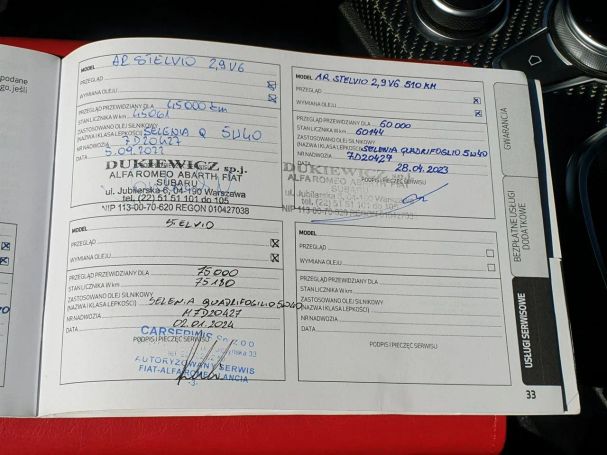 podane
go, jeśli
MODEL AR STELVIO 2,9 V6
PRZEGLĄD
WYMIANA OLEJU
PRZEGLĄD PRZEWIDZIANY DLA 45000 km
STAN LICZNIKA W km 45061
ZASTOSOWANO OLEJ SILNIKOWY
(NAZWA I KLASA LEPKOŚCI) SELENIA Q 5W40
NR NADWOZIA 7D20427
DATA 5.09.2022
DUKIEWICZ sp.j.
ALFA ROMEO ABARTH FIAT
SUBARU
ul. Jubilerska 6, 04-190 Warszawa
tel. (22) 51 51 101 do 105
NIP 113-00-70-620 REGON 010427038
MODEL AR STELVIO 2,9 V6 510 KM
PRZEGLĄD
WYMIANA OLEJU
PRZEGLĄD PRZEWIDZIANY DLA 60 000
STAN LICZNIKA W km 60144
ZASTOSOWANO OLEJ SILNIKOWY
(NAZWA I KLASA LEPKOŚCI) SELENIA QUADRIFOGLIO 5W40
NR NADWOZIA 7D20427
DATA 28.04.2023
PODPIS I PIECZĘĆ SERWISU
DUKIEWICZ sp.j.
ALFA ROMEO ABARTH FIAT
SUBARU
ul. Jubilerska 6, 04-190 Warszawa
tel. (22) 51 51 101 do 105
NIP 113-00-70-620 REGON 010427038
MODEL STELVIO
PRZEGLĄD
WYMIANA OLEJU
PRZEGLĄD PRZEWIDZIANY DLA 75 000
STAN LICZNIKA W km 75180
ZASTOSOWANO OLEJ SILNIKOWY
(NAZWA I KLASA LEPKOŚCI) SELENIA QUADRIFOGLIO 5W40
NR NADWOZIA M7D20427
DATA 02.01.2024
PODPIS I PIECZĘĆ SERWISU
AUTORYZOWANY SERWIS
FIAT-ALFA ROMEO-LANCIA
-3-
MODEL
PRZEGLĄD
WYMIANA OLEJU
PRZEGLĄD PRZEWIDZIANY DLA
STAN LICZNIKA W km
ZASTOSOWANO OLEJ SILNIKOWY
(NAZWA I KLASA LEPKOŚCI)
NR NADWOZIA
DATA
PODPIS I PIECZĘĆ SERWISU
GWARANCJA
BEZPŁATNE USŁUGI
DODATKOWE
USŁUGI SERWISOWE
33